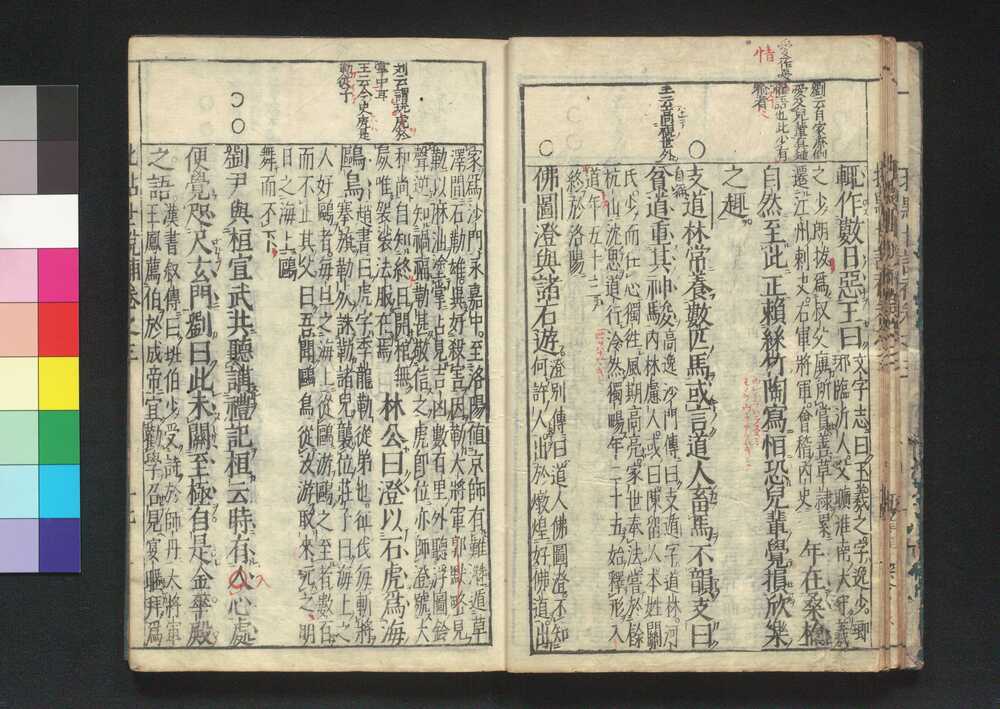 情
劉云自家潦倒
憂及兒輩真鍾
情語也此少有
喻者
輒作數日惡王曰
文字志曰王羲之字逸少瑯
邪臨沂人父曠淮南太守羲
之少所拔爲叔父廙所賞善草隸累
遷江州刺史右軍將軍會稽内史
年在桑楡
自然至此正賴絲竹陶寫恒恐兒輩覺損欣樂
之趣
○
支道林常養數匹馬或言道人畜馬不韻支曰
王云高視世外
貧道重其神駿
高逸沙門傳曰支遁字道林河
内林慮人或曰陳留人本姓關
氏少而任心獨往風期高亮家世奉法嘗於餘
杭山沈思道行泠然獨暢年二十五始釋形入
道年五十三
終於洛陽
○
佛圖澄與諸石遊
澄別傳曰道人佛圖澄不知
何許人出於燉煌好佛道出
家爲沙門永嘉中至洛陽値京師有難潛遁草
澤聞石勒雄異好殺害因勒大將軍郭默略見
勒以麻油塗掌占見吉凶數百里外聽浮圖鈴
聲逆知禍福勒甚敬信之虎即位亦師澄號大
劉云謂玩虎於
掌中耳
王云今史虎是
勒從子
和尚自知終日開棺無
屍唯袈裟法服在焉
林公曰澄以石虎爲海
鷗鳥
趙書曰虎字季龍勒從弟也征伐每斬將
搴旗勒死誅勒諸兒襲位莊子曰海上之
人好鷗者每旦之海上從鷗游鷗之至者數百
而不止其父曰吾聞鷗鳥從汝游取來玩之明
日之海上鷗
舞而不下
○○
劉尹與桓宣武共聽講禮記桓云時有入心處
便覺咫尺玄門劉曰此未關至極自是金華殿
之語
漢書叙傳曰班伯少受詩於師丹大將軍
王鳳薦伯於成帝宜勸學召見宴暱拜爲